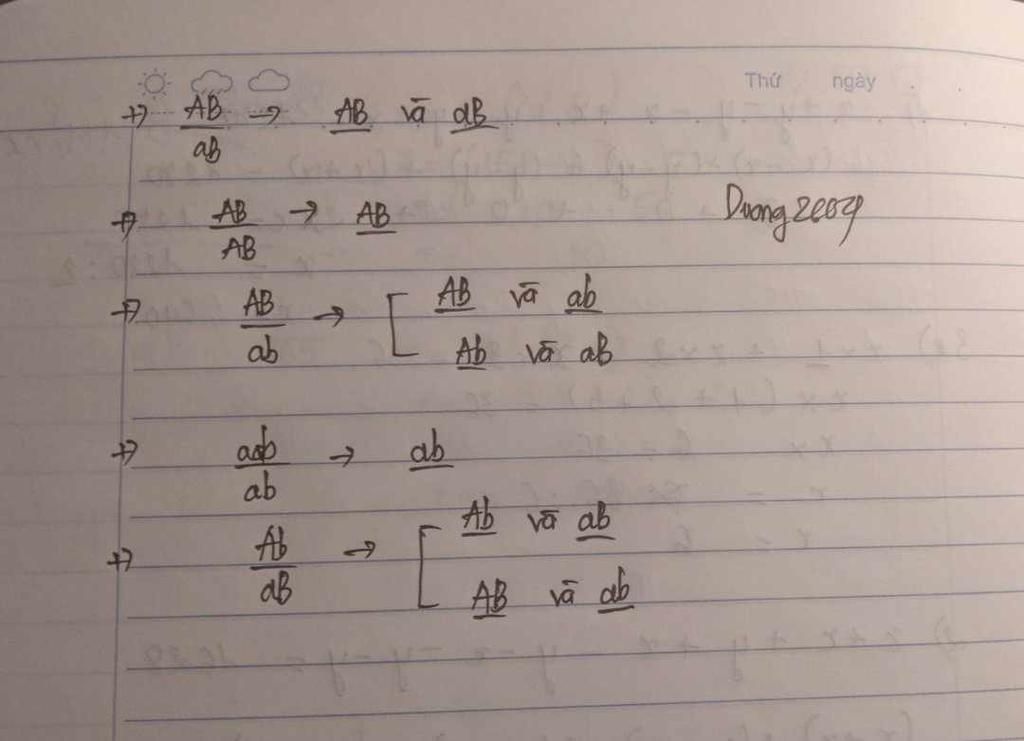 Thứ ngày
+) AB/aB → AB và aB
+) AB/AB → AB
Duong2004
+) AB/ab → [ AB và ab
Ab và aB
+) ab/ab → ab
+) Ab/aB → [ Ab và ab
AB và ab